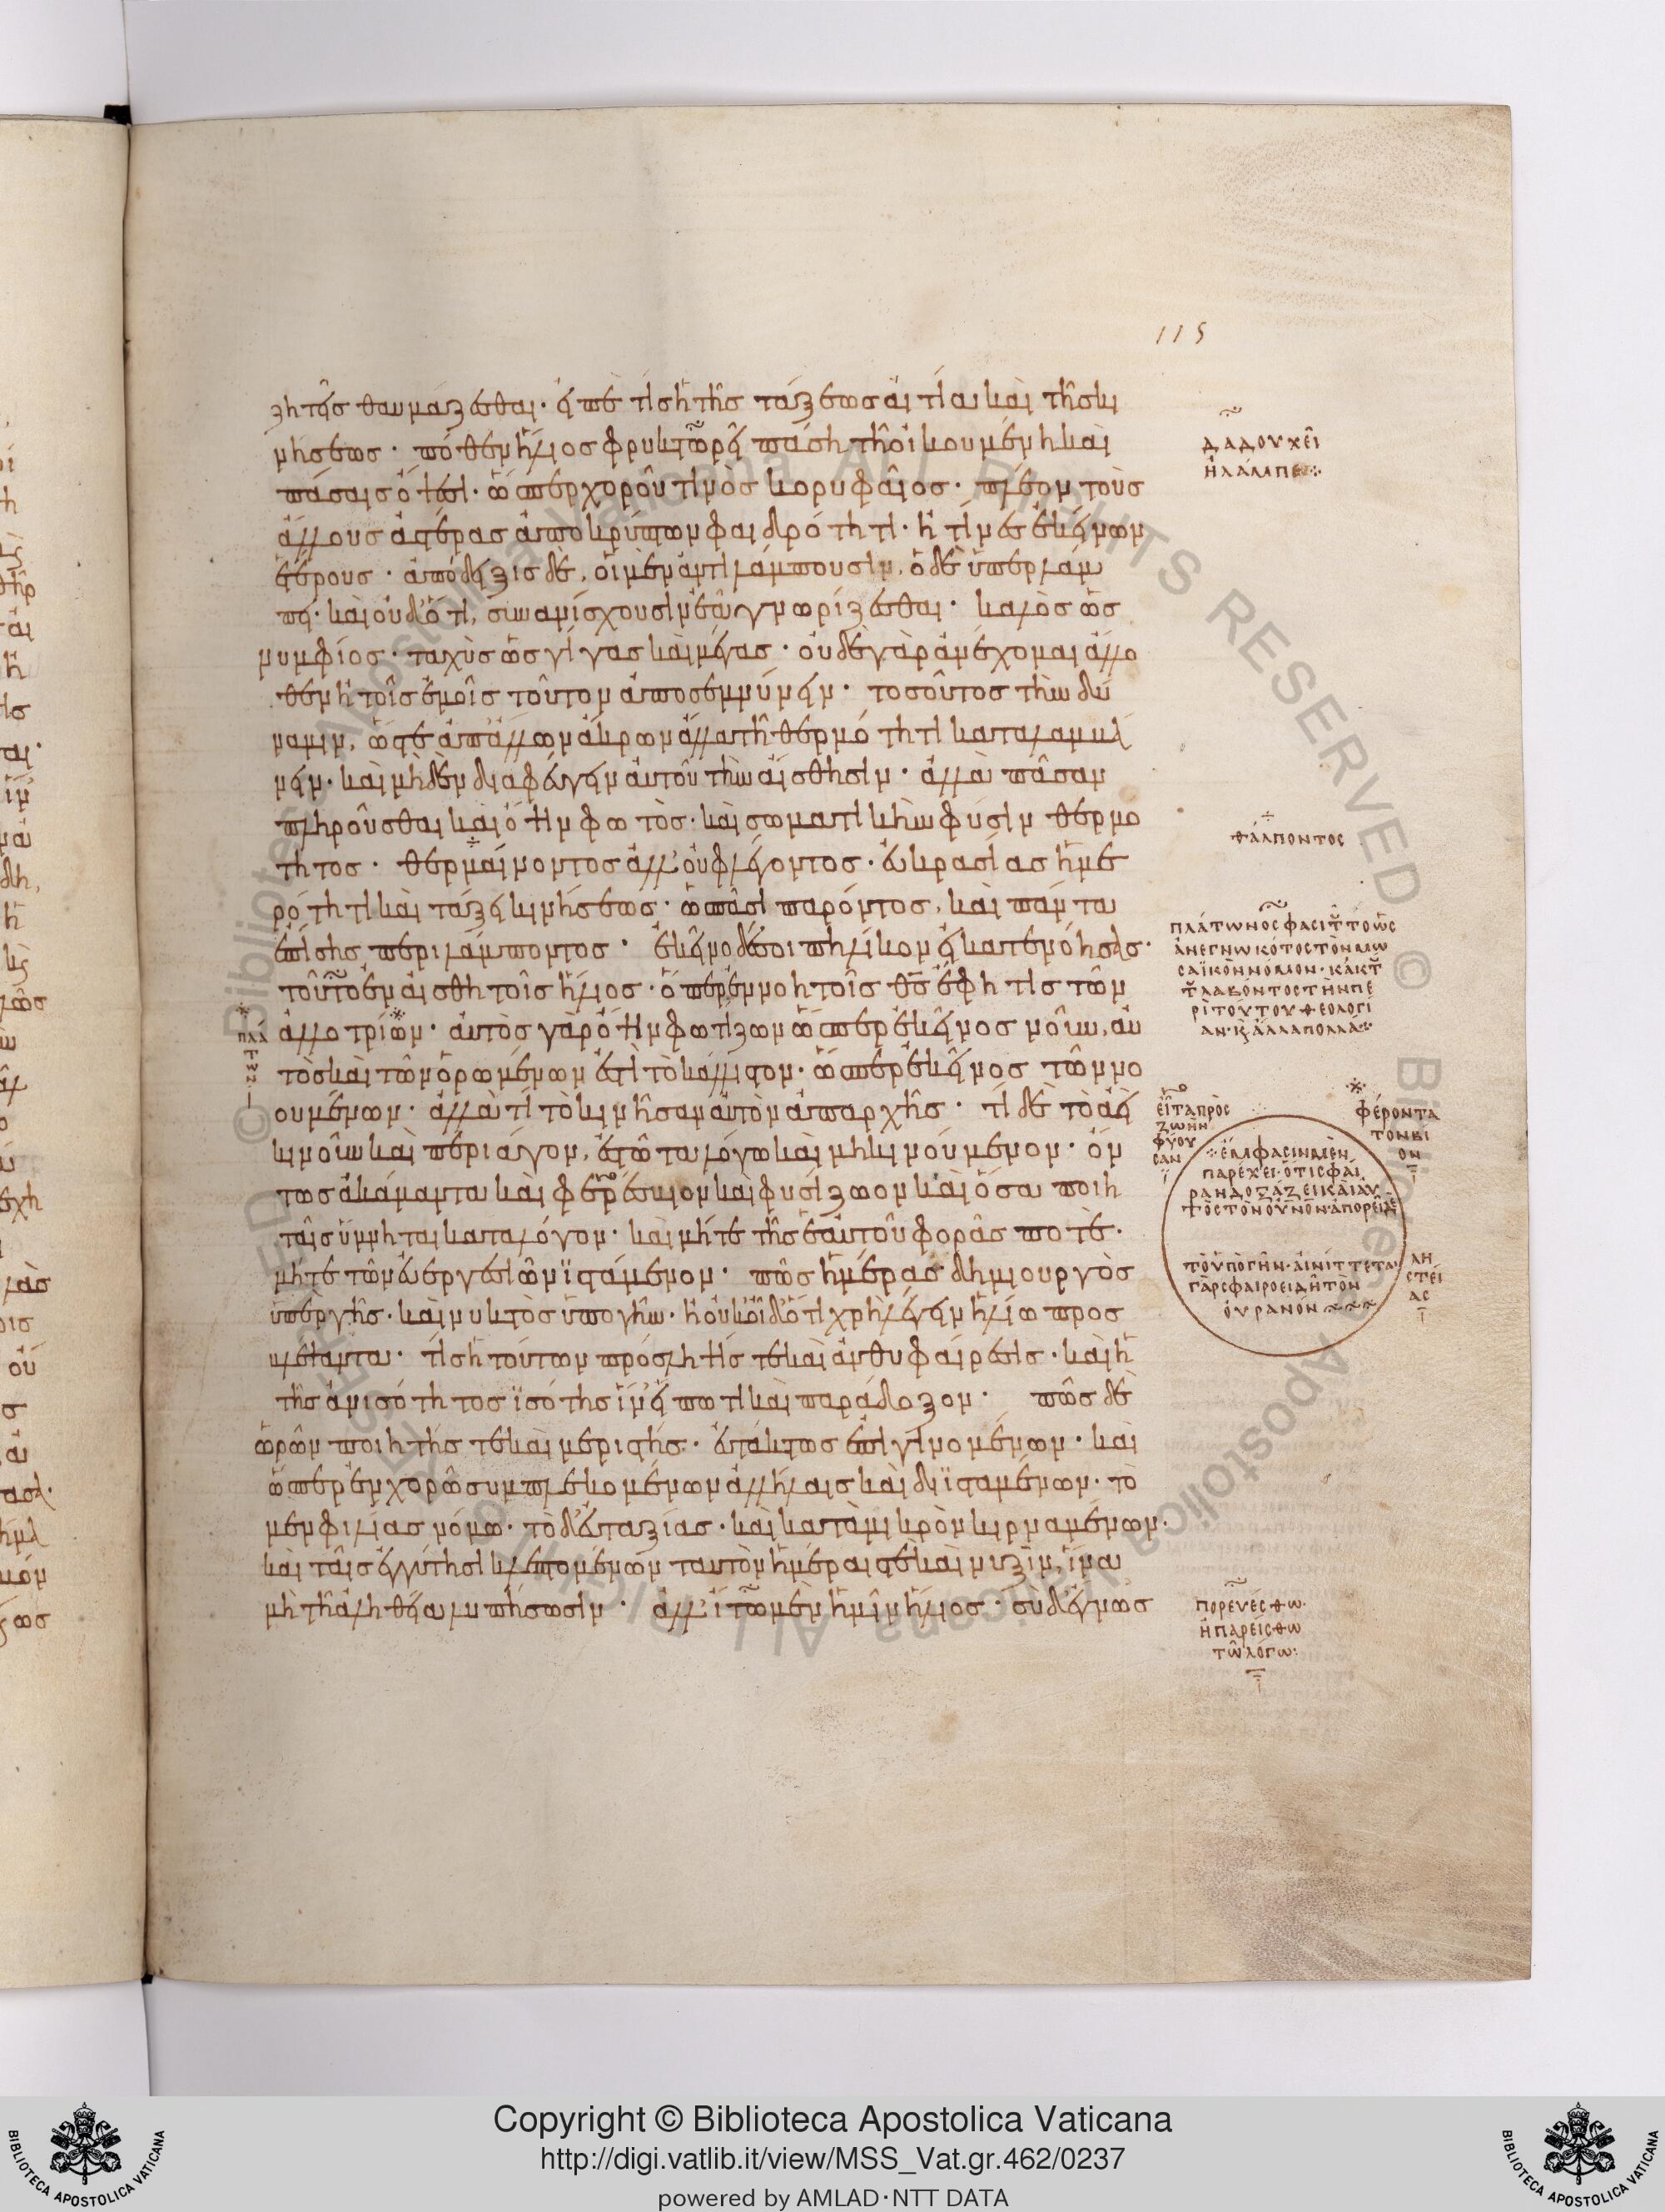 115
ζητεῖς θαυμάζεσθαι· εἰπὲ τίς ἡ τῆς τάξεως αἰτία καὶ τῆς κι
νήσεως· πόθεν ἥλιος φρυκτωρεῖ πάσῃ τῇ οἰκουμένῃ καὶ
πάσαις ὄψεσι· ὥσπερ χοροῦ τινὸς κορυφαῖος· πλέον τοὺς
ἄλλους ἀστέρας ἀποκρύπτων φαιδρότητι· ἤ τινες ἐκείνων
ἑτέρους· ἀπόδειξις δέ, οἱ μὲν ἀντιλάμπουσιν, ὁ δὲ ὑπερλάμ
πει· καὶ οὐδ' ὅτι, συνανίσχουσιν ἐῶν γνωρίζεσθαι· καλὸς ὡς
νυμφίος· ταχὺς ὡς γίγας καὶ μέγας· οὐδὲ γὰρ ἀνέχομαι ἄλλο
θεν ἢ τοῖς ἐμοῖς τοῦτον ἀποσεμνύνειν· τοσοῦτος τὴν δύ
ναμιν, ὥστε ἀπ' ἄλλων ἄκρων ἄλλα τῇ θερμότητι καταλαμβά
νειν· καὶ μηδὲν διαφεύγειν αὐτοῦ τὴν αἴσθησιν· ἀλλὰ πᾶσαν
πληροῦσθαι καὶ ὄψιν φωτός· καὶ σωματικὴν φύσιν θερμό
τητος· θερμαίνοντος ἀλλ' οὐ φλέγοντος· εὐκρασίας ἡμε
ρότητι καὶ τάξει κινήσεως· ὡς πᾶσι παρόντος, καὶ πάντα
ἐπίσης περιλάμποντος· ἐκεῖνο δέ σοι πηλίκον εἰ κατενόησας·
τοῦτο ἐν αἰσθητοῖς ἥλιος· ὅπερ ἐν νοητοῖς θς ἔφη τις τῶν
ἀλλοτρίων· αὐτὸς γὰρ ὄψιν φωτίζων ὥσπερ ἐκεῖνος νοῦν, αὐ
τὸς καὶ τῶν ὁρωμένων ἐστὶ τὸ κάλλιστον· ὥσπερ ἐκεῖνος τῶν νο
ουμένων· ἀλλὰ τί τὸ κινῆσαν αὐτὸν ἀπαρχῆς· τί δὲ τὸ ἀεὶ
κινοῦν καὶ περιάγον, ἑστῶτα λόγῳ καὶ μὴ κινούμενον· ὄν
τως ἀκάμαντα καὶ φερέσβιον καὶ φυσίζωον καὶ ὅσα ποιη
ταῖς ὕμνηται κατὰ λόγον· καὶ μήτε τῆς ἑαυτοῦ φορᾶς ποτέ·
μήτε τῶν εὐεργεσιῶν ἱστάμενον· πῶς ἡμέρας δημιουργὸς
ὑπὲρ γῆς· καὶ νυκτὸς ὑπὸ γῆν· ἢ οὐκ οἶδ' ὅτι χρὴ λέγειν ἡλίῳ προσ
βλέψαντα· τίς ἡ τούτων πρόσληψίς τε καὶ ἀνθυφαίρεσις· καὶ ἡ
τῆς ἀνισότητος ἰσότης ἵν' εἴπω τι καὶ παράδοξον· πῶς δὲ
ὡρῶν ποιητής τε καὶ μεριστής· εὐτάκτως ἐπιγινομένων· καὶ
ὥσπερ ἐν χορῷ συμπλεκομένων ἀλλήλαις καὶ διϊσταμένων· τὸ
μὲν φιλίας νόμῳ· τὸ δ' εὐταξίας· καὶ κατὰ μικρὸν κιρναμένων·
καὶ ταῖς ἐγγύτησι κλεπτομένων ταυτὸν ἡμέραις τὲ καὶ νυξὶν, ἵνα
μὴ τῇ ἀηθείᾳ λυπήσωσιν· ἀλλ' ἴτω μὲν ἡμῖν ἥλιος· σὺ δ' ἔγνως
ΔΑΔΟΥΧΕῖ
Ἢ ΛΑΜΠΕΙ
ΘΆΛΠΟΝΤΟΣ
ΠΛΆΤΩΝΌΣ ΦΑΣΙ ΤΟΥΤΟ ὩΣ
ἈΝΕΓΝΩΚΌΤΟΣ ΤῸΝ ΜΩ
ΣΑΪΚῸΝ ΝΌΜΟΝ· ΚἈΚ ΤΟΥ
ΤΟΥ ΛΑΒΌΝΤΟΣ ΤῊΝ ΠΕ
ΡῚ ΤΟΎΤΟΥ ΘΕΟΛΟΓΊ
ΑΝ· Κ ἌΛΛΑ ΠΟΛΛΆ
ΠΛΆ
ΤΩΝ
ΕἾΤΑ ΠΡῸΣ
ΖΩῊΝ
ΦΎΟΥ
ΣΑΝ
ΦΈΡΟΝΤΑ
ΤῸΝ ΒΊ
ΟΝ
ἜΜΦΑΣΙΝ ΜῈΝ
ΠΑΡΈΧΕΙ· ὍΤΙ ΣΦΑΙ
ΡΑΝ ΔΟΞΆΖΕΙ ΚΑῚ ΑΥ
ΤῸΣ ΤῸΝ ΟΥΝΟΝ· ἈΠΟΡΕῖ ΔῈ
ΤῸ ὙΠῸ ΓΗΝ· ΑἸΝΊΤΤΕΤΑΙ
ΓᾺΡ ΣΦΑΙΡΟΕΙΔΗ ΤῸΝ
ΟΥΡΑΝΌΝ
ΛΗ
ΣΤΕΊ
ΑΣ
ΠΟΡΕΥΈΣΘΩ·
Ἢ ΠΑΡΕΊΣΘΩ
ΤΩ ΛΌΓΩ:
Copyright © Biblioteca Apostolica Vaticana
http://digi.vatlib.it/view/MSS_Vat.gr.462/0237
powered by AMLAD·NTT DATA
BIBLIOTECA APOSTOLICA VATICANA
BIBLIOTECA APOSTOLICA VATICANA